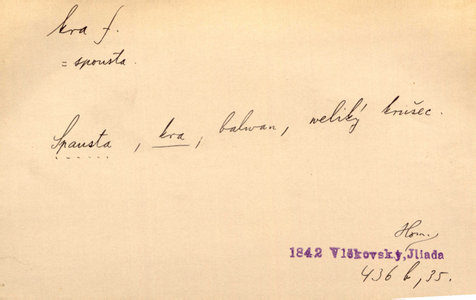 kra f.
= spousta.
Spausta, kra, balwan, weliký krušec.
Hom.
1842 Vlčkovský, Jliada
436 b, 35.